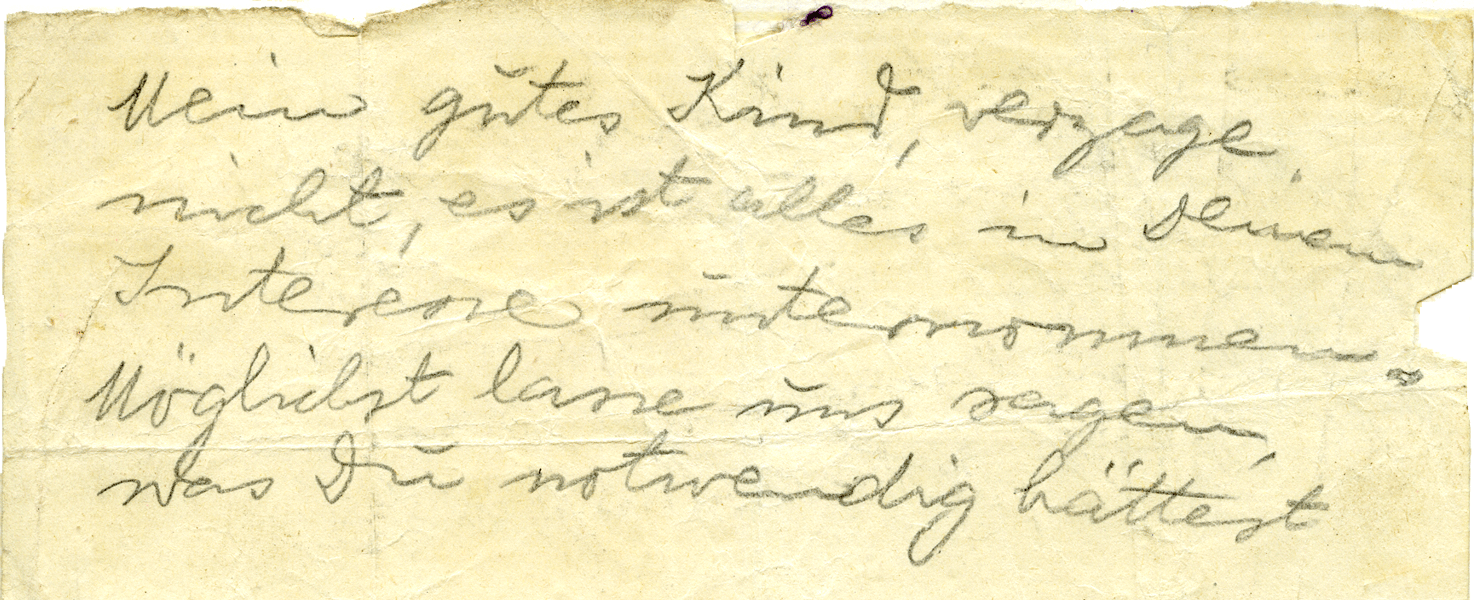 Mein gutes Kind, verzage
nicht, es ist alles in Deinem
Interesse unternommen.
Möglichst lasse uns sagen,
was Du notwendig hättest